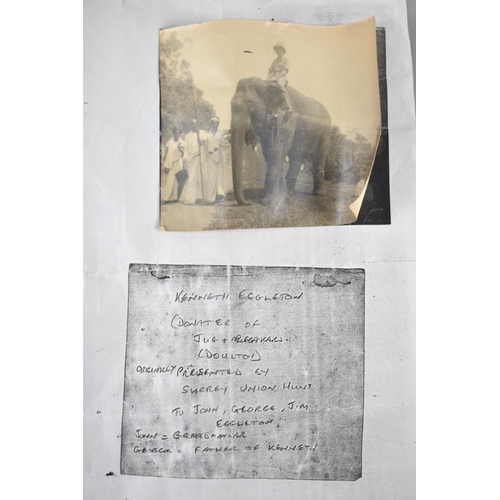 KENNETH EGGLETON
(DONATER OF
JUG + BEAKERS -
(DOULTON)
ORIGINALLY PRESENTED BY
SURREY UNION HUNT
TO JOHN, GEORGE, JIM
EGGLETON,
JOHN = GRANDFATHER
GEORGE = FATHER OF KENNETH